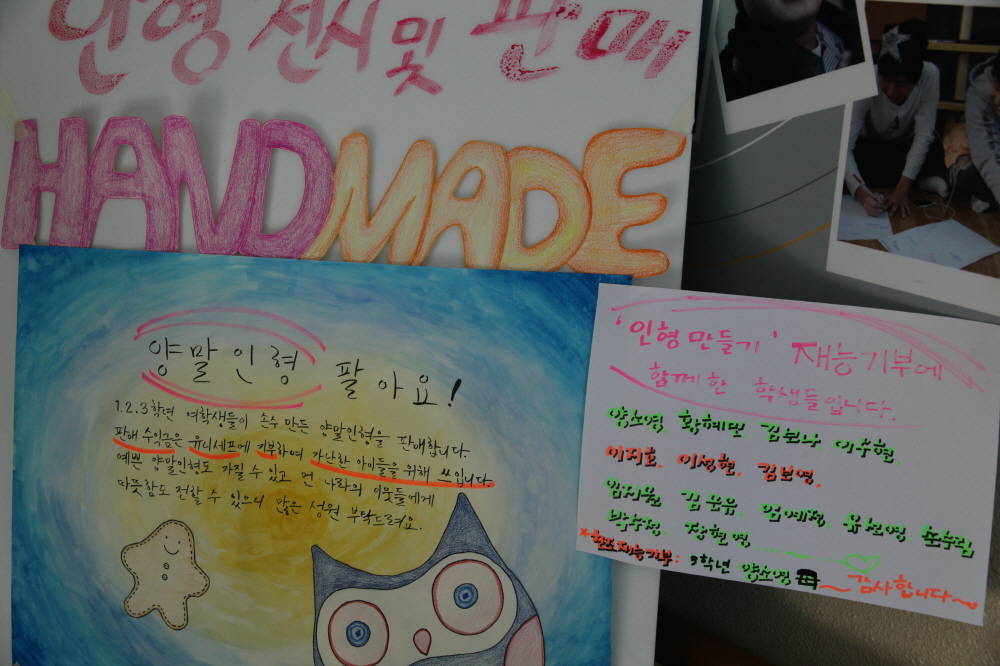 인형 전시 및 판매
HANDMADE
양말인형 팔아요!
1.2.3학년 여학생들이 손수 만든 양말인형을 판매합니다.
판매 수익금은 유니세프에 기부하여 가난한 아이들을 위해 쓰입니다.
예쁜 양말인형도 가질 수 있고 먼 나라의 이웃들에게
따뜻함도 전할 수 있으니 많은 성원 부탁드려요.
'인형 만들기' 재능기부에
함께한 학생들입니다.
양소영 황혜민 김보나 이수현.
이지호. 이성현. 김보영.
임지원 김윤유. 임예정. 유선영. 손수림
박수정. 장현영
재능기부: 3학년 양소영
~감사합니다~